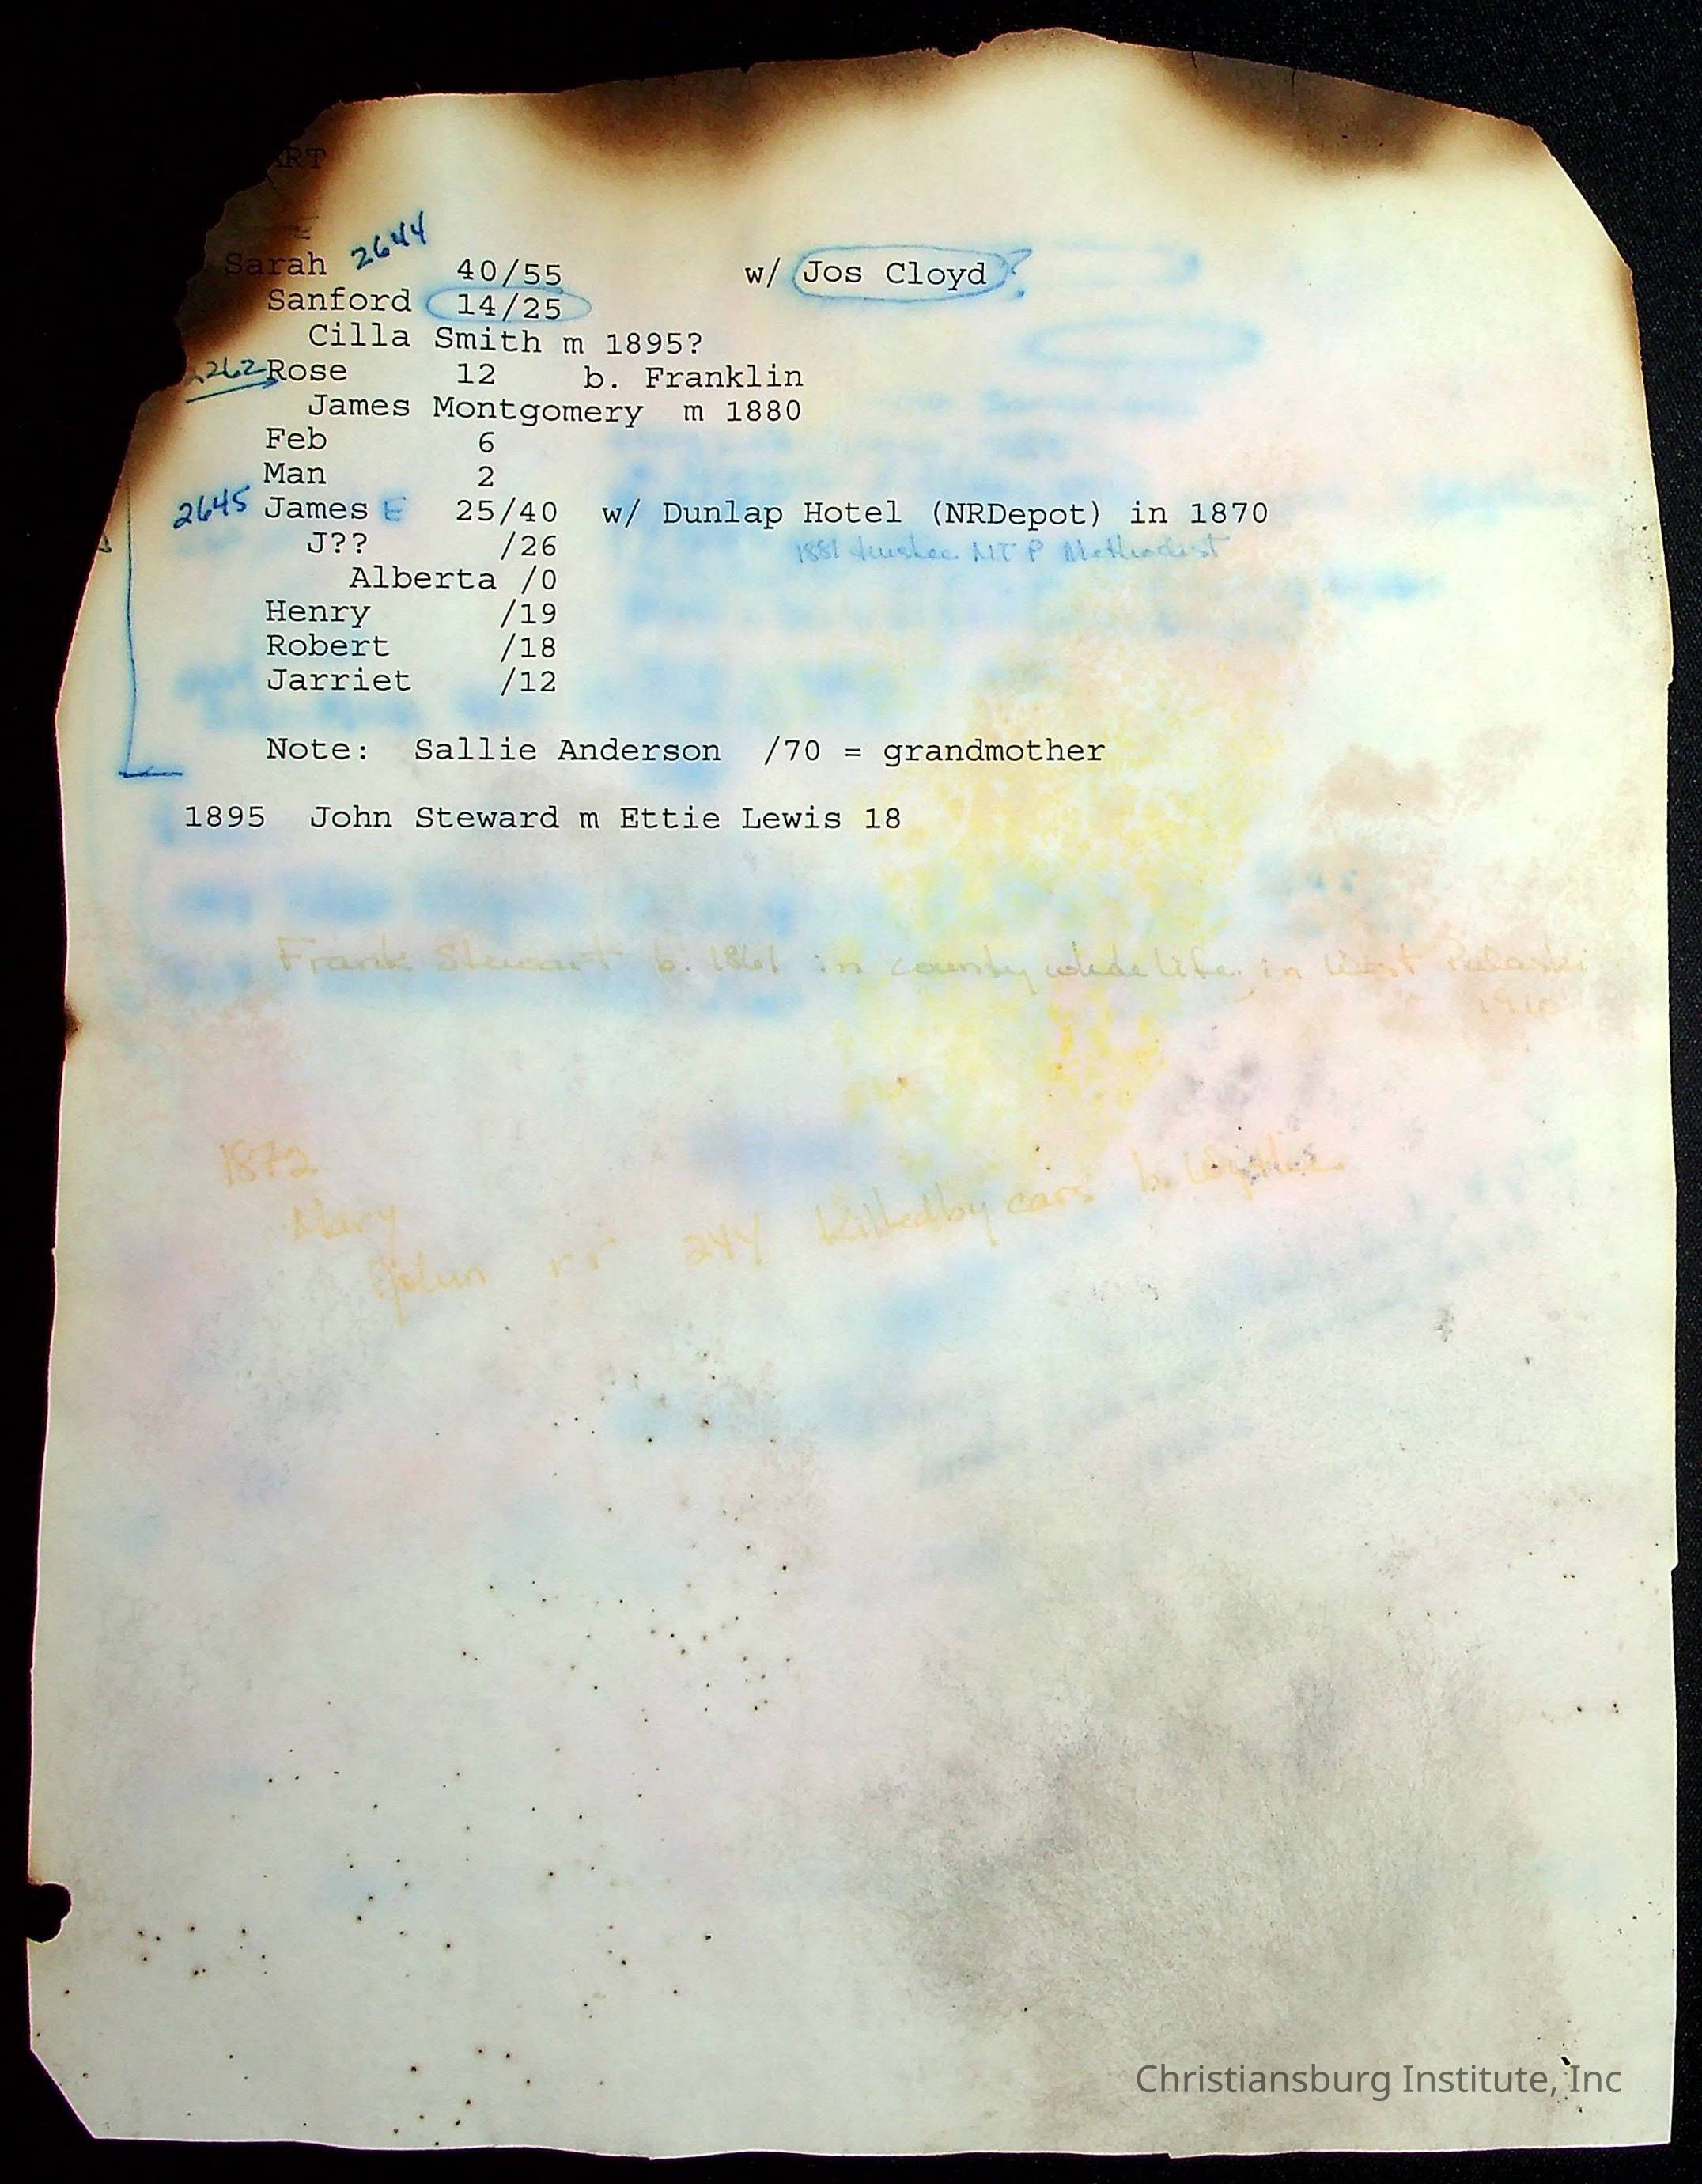 ART
Sarah 2644 40/55 w/ Jos Cloyd ?
Sanford 14/25
Cilla Smith m 1895?
2262 Rose 12 b. Franklin
James Montgomery m 1880
Feb 6
Man 2
2645 James E 25/40 w/ Dunlap Hotel (NRDepot) in 1870
J?? /26 1881 trustee MT P Methodist
Alberta /0
Henry /19
Robert /18
Jarriet /12
Note: Sallie Anderson /70 = grandmother
1895 John Steward m Ettie Lewis 18
Frank Stewart b. 1861 in county whole life in West Pulaski
1910
1872
Mary
John rr 244 Killed by cars b. Wythe
Christiansburg Institute, Inc